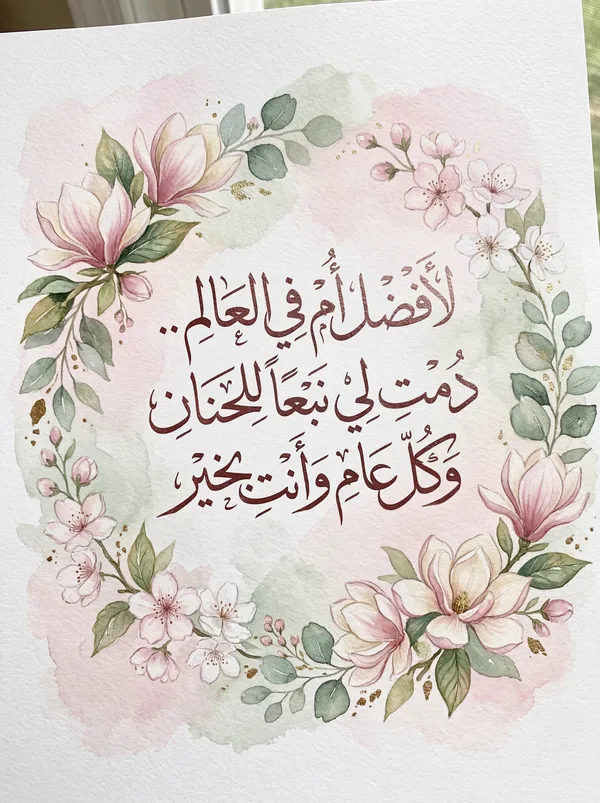 لأَفْضَل أُم فِي العَالِم ..
دُمْتِ لِي نَبْعَاً لِلحَنَانِ
وَكُلّ عَامِ وَأَنْتِ بِخَيْر